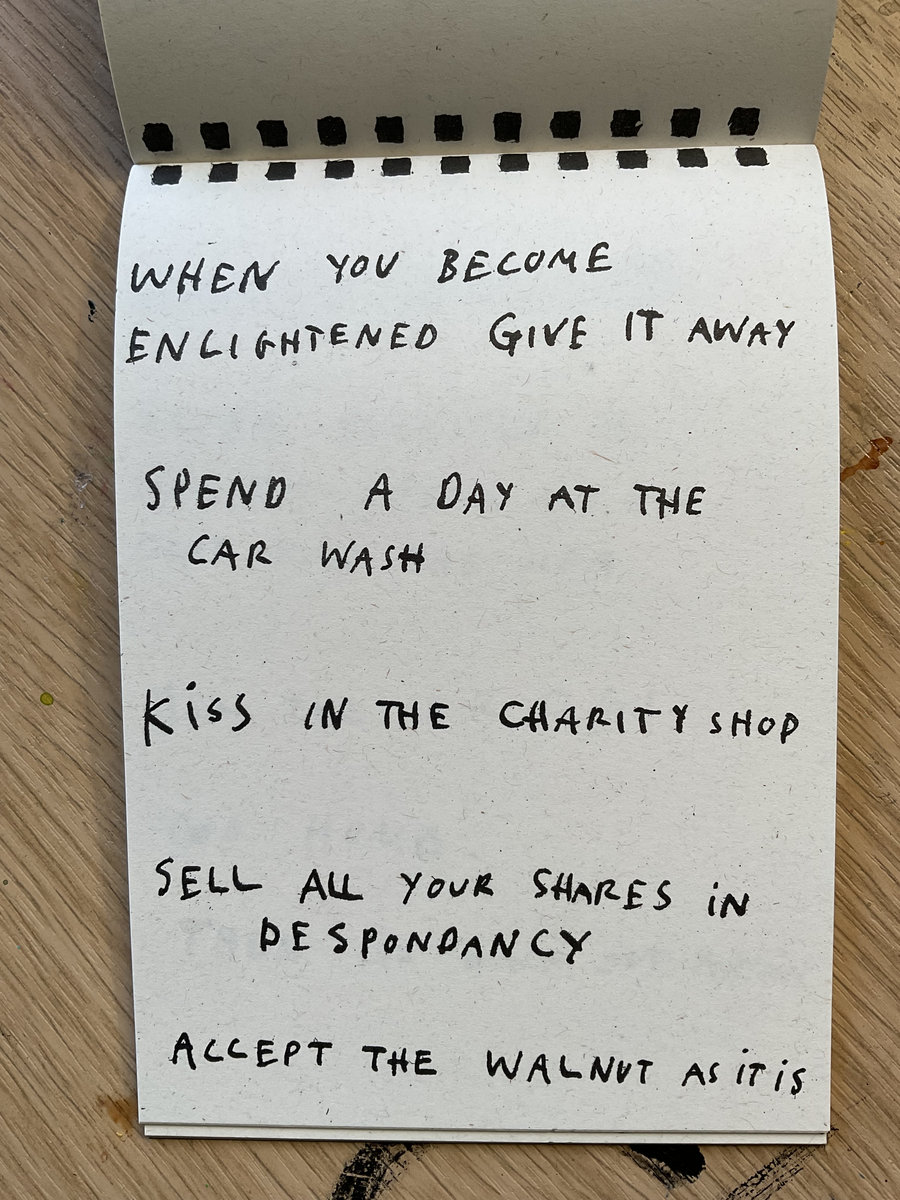 WHEN YOU BECOME
ENLIGHTENED GIVE IT AWAY
SPEND A DAY AT THE
CAR WASH
KiSS IN THE CHARITY SHOP
SELL ALL YOUR SHARES iN
DESPONDANCY
ACCEPT THE WALNUT AS iT iS